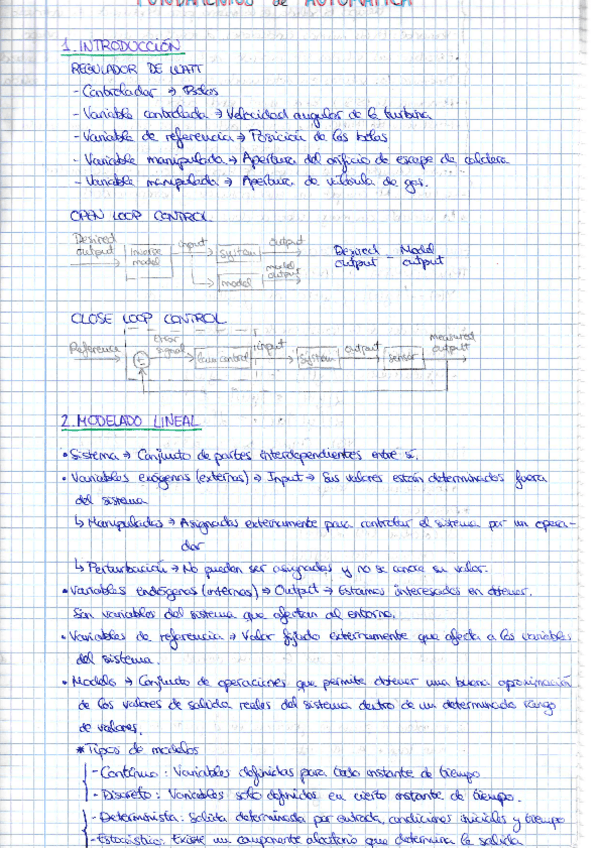 FUNDAMENTOS de AUTOMÁTICA
1. INTRODUCCIÓN
REGULADOR DE WATT
- Controlador → Bolas
- Variable controlada → Velocidad angular de la turbina
- Variable de referencia → Posición de las bolas
- Variable manipulada → Apertura del orificio de escape de caldera
- Variable manipulada → Apertura de válvula de gas.
OPEN LOOP CONTROL
Desired output
Inverse model
input
System
output
model
model output
Desired output - Model output
CLOSE LOOP CONTROL
Reference
Error signal
control
input
System
output
sensor
measured output
2. MODELADO LINEAL
• Sistema → Conjunto de partes interdependientes entre sí.
• Variables exógenas (externas) → Input → Sus valores están determinados fuera
del sistema
↳ Manipuladas → Asignadas externamente para controlar el sistema por un opera-
dor
↳ Perturbación → No pueden ser asignadas y no se conoce su valor.
• Variables endógenas (internas) → Output → Estamos interesados en obtener.
Son variables del sistema que afectan al entorno.
• Variables de referencia → Valor fijado externamente que afecta a las variables
del sistema.
• Modelo → Conjunto de operaciones que permite obtener una buena aproximación
de los valores de salida reales del sistema dentro de un determinado rango
de valores.
* Tipos de modelos
- Continuo: Variables definidas para todo instante de tiempo
- Discreto: Variables solo definidas en cierto instante de tiempo.
- Determinista: Salida determinada por entrada, condiciones iniciales y tiempo
- Estocástico: Existe un componente aleatorio que determina la salida